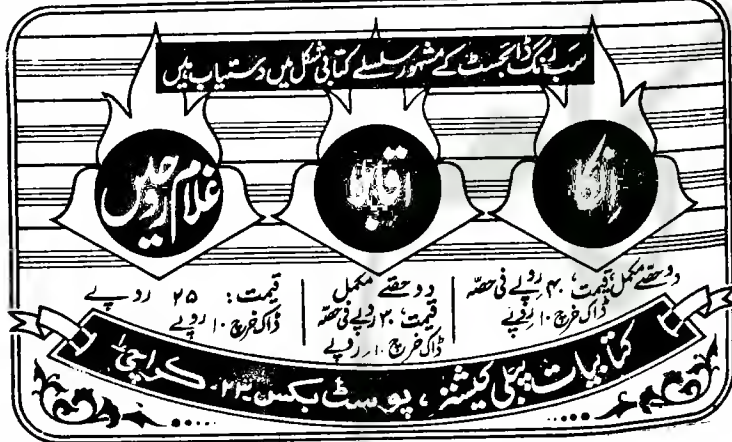 سب رنگ ڈائجسٹ کے مشہور سلسلے کتابی شکل میں دستیاب ہیں
انکا
اقابلا
غلام روحیں
دو حصّے مکمل، قیمت: ۴۰ روپے فی حصّہ
ڈاک خرچ ۱۰ روپے
دو حصّے مکمل
قیمت: ۳۰ روپے فی حصّہ
ڈاک خرچ ۱۰ روپے
قیمت: ۲۵ روپے
ڈاک خرچ ۱۰ روپے
کتابیات پبلی کیشنز، پوسٹ بکس ۲۳، کراچی ۱